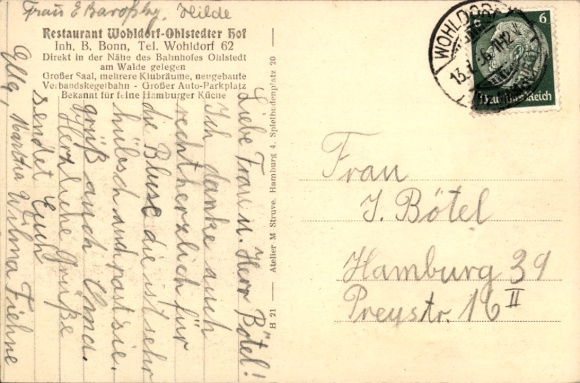 Frau E Baroßky, Hilde
Restaurant Wohldorf-Ohlstedter Hof
Inh. B. Bonn, Tel. Wohldorf 62
Direkt in der Nähe des Bahnhofes Ohlstedt
am Walde gelegen
Großer Saal, mehrere Klubräume, neugebaute
Verbandskegelbahn - Großer Auto-Parkplatz
Bekannt für feine Hamburger Küche
Liebe Frau u. Herr Bötel!
Ich danke auch
recht herzlich für
die Bluse die ist sehr
hübsch auch passt sie.
grüß auch Oma.
Herzliche Grüße
sendet Euch
Martha Wilma Fiehne
H 21 — Atelier M Struve, Hamburg 4, Spielbudenplatz 20 —
WOHLDORF
13.
6
Deutsches Reich
Frau
J. Bötel
Hamburg 39
Preystr. 16 II